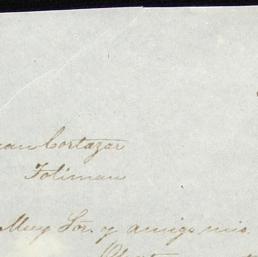 Cortazar
Toliman
Muy Sor. y amigo mio.